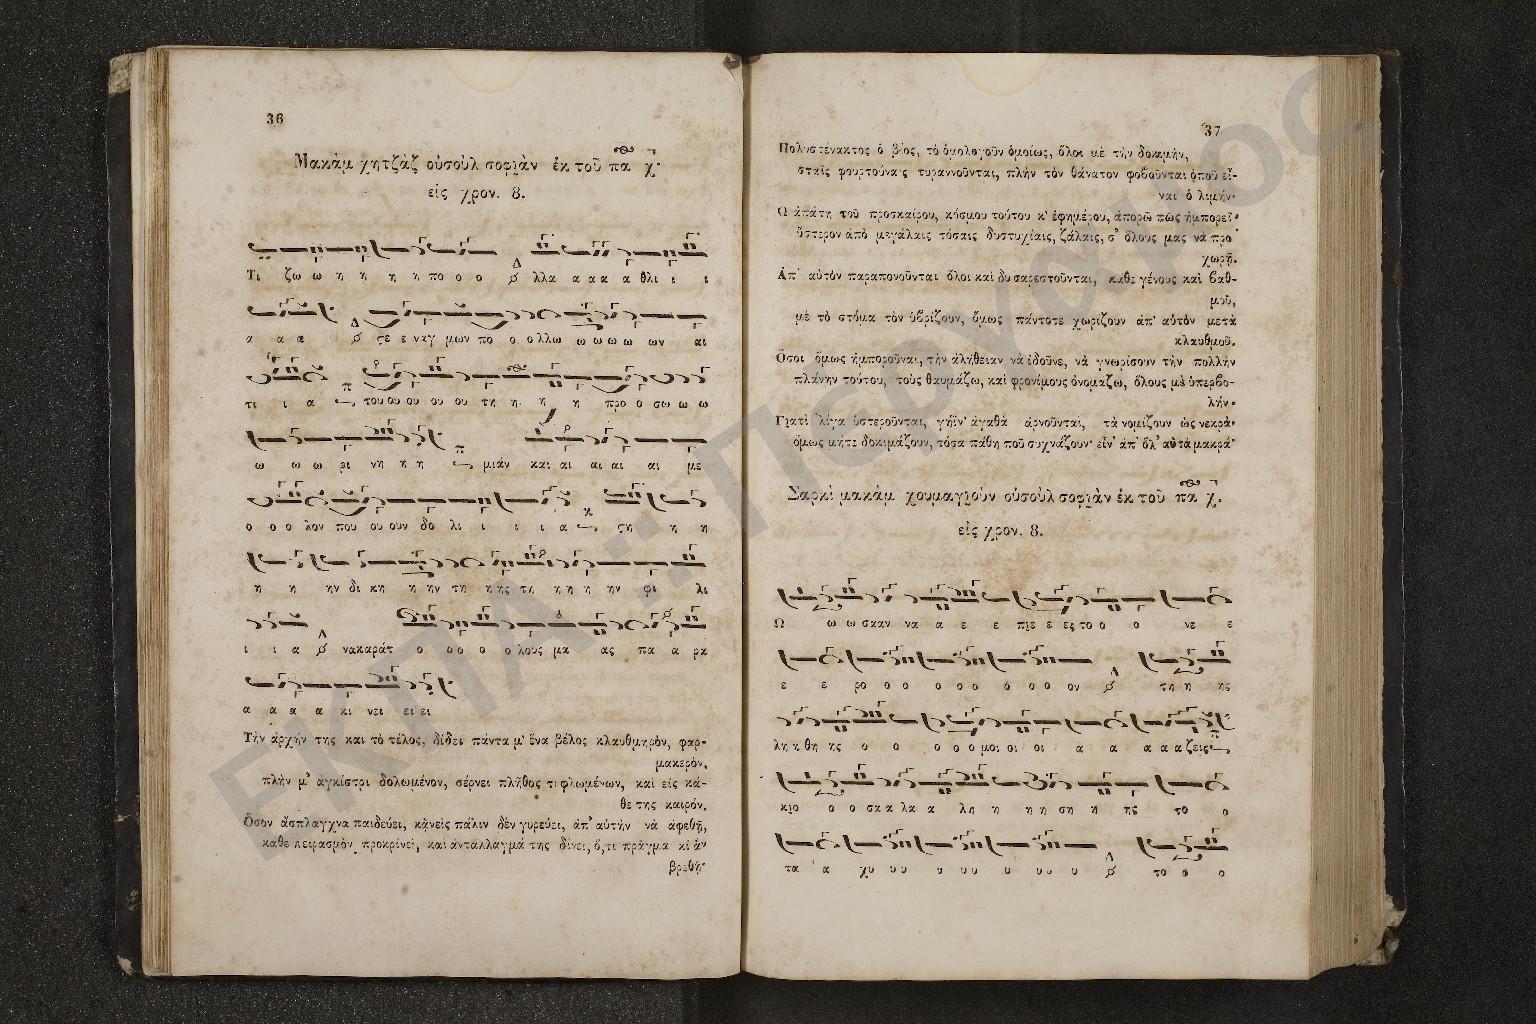 36
Μακὰμ χητζὰζ οὐσοὺλ σοφιὰν ἐκ τοῦ πα
εἰς χρον. 8.
Τι ζω ω η η η η πο ο ο λλα α α α α θλι ι ι
α α α ςε ε ναγ μων πο ο ο λλω ω ω ω ω ων αι
τι ι α του ου ου ου ου τη η η η προ ο σω ω ω
ω ω ω ρι νη η η μιάν και αι αι αι αι με
ο ο ο λον που ου ουν δο λι ι ι ι α ςη η η
η η ην δι κη η ην τη ης τη η η η ην φι λι
ι ι α νακαράτ ο ο ο ο ο λους μα ας πα α ρα
α α α α κι νει ει ει
Τὴν ἀρχήν της καὶ τὸ τέλος, δίδει πάντα μ' ἕνα βέλος κλαυθμηρὸν, φαρ-
μακερὸν,
πλὴν μ' ἀγκίστρι δολωμένον, σέρνει πλῆθος τιφλωμένων, καὶ εἰς κά-
θε της καιρόν.
Ὅσον ἄσπλαγχνα παιδεύει, κᾀνεὶς πάλιν δὲν γυρεύει, ἀπ' αὐτὴν νὰ ἀφεθῇ,
κάθε πειρασμὸν προκρίνει, καὶ ἀντάλλαγμά της δίνει, ὅ,τι πρᾶγμα κι ἂν
βρεθῇ·
37
Πολυστένακτος ὁ βίος, τὸ ὁμολογοῦν ὁμοίως, ὅλοι μὲ τὴν δοκιμὴν,
σταῖς φουρτούναις τυραννοῦνται, πλὴν τὸν θάνατον φοβοῦνται ὁποῦ εἶ-
ναι ὁ λιμήν·
Ὦ ἀπάτη τοῦ προσκαίρου, κόσμου τούτου κ' ἐφημέρου, ἀπορῶ πῶς ἠμπορεῖ·
ὕστερον ἀπὸ μεγάλαις τόσαις δυστυχίαις, ζάλαις, σ' ὅλους μας νὰ προ
χωρῇ.
Ἀπ' αὐτὸν παραπονοῦνται ὅλοι καὶ δυσαρεστοῦνται, κάθε γένους καὶ βαθ-
μοῦ,
μὲ τὸ στόμα τὸν ὑβρίζουν, ὅμως πάντοτε χωρίζουν ἀπ' αὐτὸν μετὰ
κλαυθμοῦ.
Ὅσοι ὅμως ἠμποροῦναι, τὴν ἀλήθειαν νὰ ἰδοῦνε, νὰ γνωρίσουν τὴν πολλὴν
πλάνην τούτου, τοὺς θαυμάζω, καὶ φρονίμους ὀνομάζω, ὅλους μὲ ὑπερβο-
λήν·
Γιατὶ λίγα ὑστεροῦνται, γήϊν' ἀγαθὰ ἀρνοῦνται, τὰ νομίζουν ὡς νεκρὰ·
ὅμως μήτε δοκιμάζουν, τόσα πάθη ποῦ συχνάζουν· εἶν' ἀπ' ὅλ' αὐτὰ μακρά·
Σαρκὶ μακὰμ χουμαγιοὺν οὐσοὺλ σοφιὰν ἐκ τοῦ πα
εἰς χρον. 8.
Ω ω ω σκαν να α ε ε πιε ε ες το ο ο νε ε
ε ε ρο ο ο ο ο ο ο ο ο ον τη η ης
λη η θη ης ο ο ο ο ο μοι οι οι α α α α α ζεις
κιο ο ο σκα λα α λη η η η ση η ης το ο
τα α χυ υ υ υ υ υ υ υ υ υ το ο ο
ΕΚΠΑ :: Πέργαμος